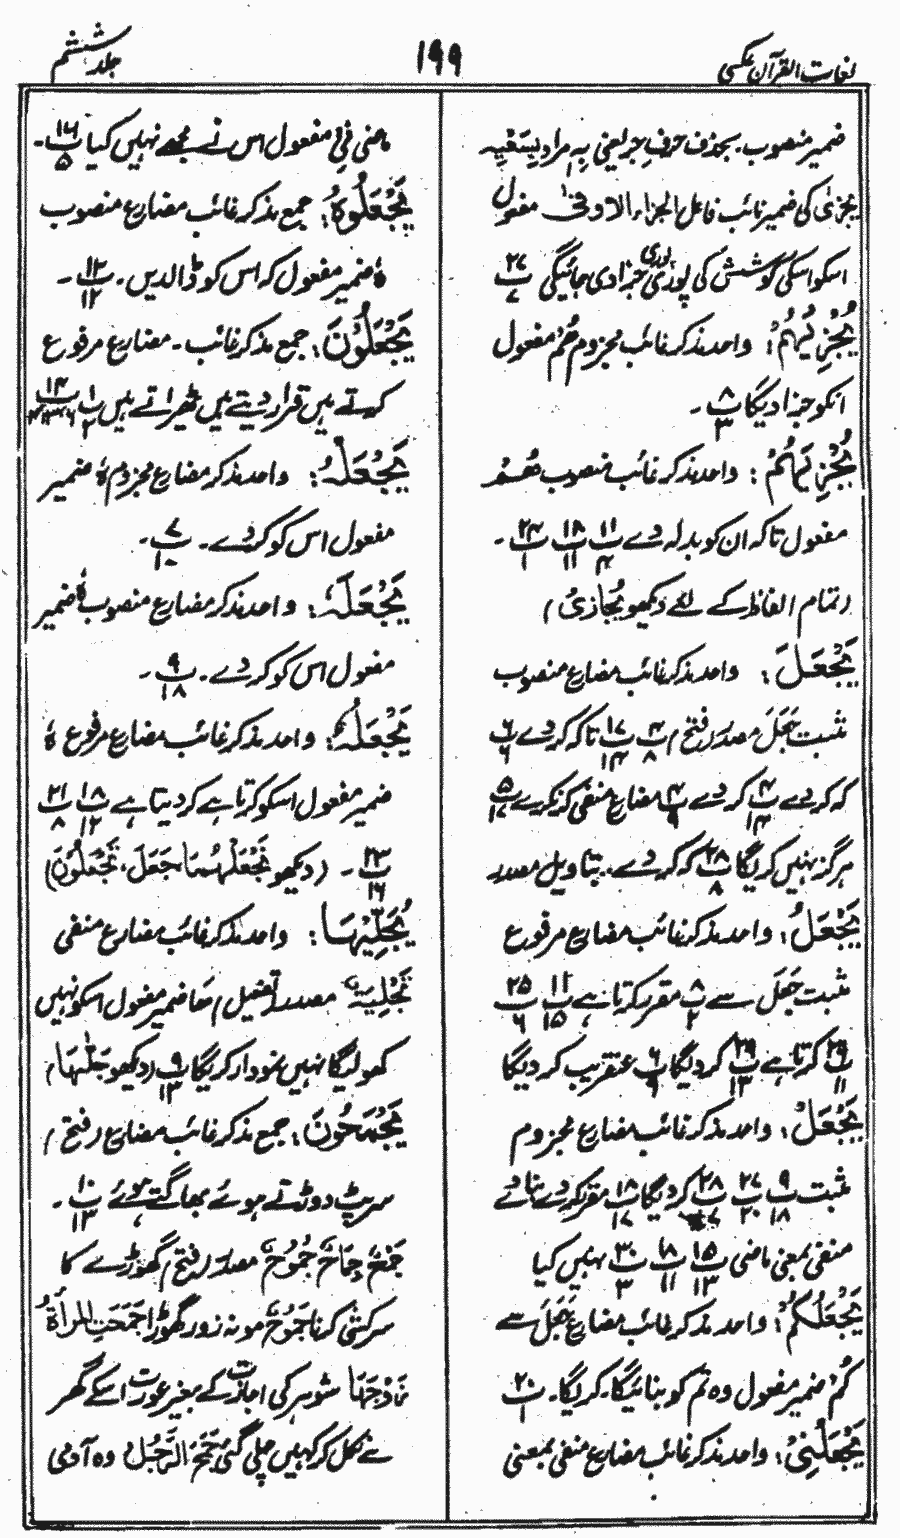 لغات القرآن عکسی
۱۹۹
جلد ششم
ضمیر منصوب۔ بحذف حرف جر یعنی بِہٖ مراد بِسَعْیِہٖ
یجزیٰ کی ضمیر نائب فاعل الجزاء الاوفیٰ مفعول
اسکو اسکی کوشش کی پوری پوری جزا دی جائیگی ۲۷ ۷
یُجْزِیْہِمْ: واحد مذکر غائب مجزوم ھُمْ مفعول
انکو جزا دیگا ۸ ۳ ۔
یُجْزِیَہُمْ: واحد مذکر غائب منصوب ھُمْ
مفعول تاکہ ان کو بدلہ دے ۱۱ ۴ ۱۸ ۱۱ ۲۴ ۱ ۔
(تمام الفاظ کے لئے دیکھو یُجَازیٰ)
یَجْعَلَ: واحد مذکر غائب مضارع منصوب
مثبت جَعَلَ مصدر (فتح) ۴ ۸ ۱۷ ۱۴ تاکہ کر دے ۶ ۶
کہ کر دے ۴ ۱۴ کر دے ۴ ۹ مضارع منفی کہ نکرے ۵ ۱۷
ہرگز نہیں کریگا ۲۸ ۸ کہ کر دے۔ بتاویل مصدر
یَجْعَلُ: واحد مذکر غائب مضارع مرفوع
مثبت جَعَلَ سے ۸ ۲ مقرر کرتا ہے ۱۱ ۱۵ ۲۵ ۶
۲۹ ۱۱ کرتا ہے ۲۹ ۱۳ کر دیگا ۶ ۹ عنقریب کر دیگا
یَجْعَلْ: واحد مذکر غائب مضارع مجزوم
مثبت ۹ ۱۸ ۲۷ ۲۰ ۲۸ کر دیگا ۱۸ ۱۷ مقرر کر دے بنا دے
منفی بمعنی ماضی ۱۵ ۱۳ ۱۸ ۱۱ ۳۰ ۳ نہیں کیا
یَجْعَلُکُمْ: واحد مذکر غائب مضارع جَعَلَ سے
کُمْ ضمیر مفعول وہ تم کو بنائیگا۔ کریگا۔ ۲۰ ۱
یَجْعَلْنِیْ: واحد مذکر غائب مضارع منفی بمعنی
ماضی فِیْ مفعول اس نے مجھے نہیں کیا ۱۶ ۵ ۔
یَجْعَلُوْہُ: جمع مذکر غائب مضارع منصوب
ہٗ ضمیر مفعول کہ اس کو ڈالدیں۔ ۱۲ ۱۲ ۔
یَجْعَلُوْنَ: جمع مذکر غائب۔ مضارع مرفوع
کہتے ہیں قرار دیتے ہیں ٹھراتے ہیں ۱ ۲ ۱۴
یَجْعَلْہُ: واحد مذکر مضارع مجزوم ہٗ ضمیر
مفعول اس کو کر دے۔ ۷ ۱۰ ۔
یَجْعَلَہٗ: واحد مذکر مضارع منصوب ہٗ ضمیر
مفعول اس کو کر دے۔ ۹ ۱۸ ۔
یَجْعَلُہٗ: واحد مذکر غائب مضارع مرفوع ہٗ
ضمیر مفعول اسکو کرتا ہے کر دیتا ہے ۱۸ ۱۲ ۲۱ ۸
۲۳ ۱۶ ۔ (دیکھو نَجْعَلُہَا جَعَلَ، تَجْعَلُوْنَ)
یُجَلِّیْہَا: واحد مذکر غائب مضارع منفی
تَجْلِیَۃٌ مصدر (تفعیل) ھَا ضمیر مفعول اسکو نہیں
کھولیگا نہیں نمودار کریگا ۹ ۱۳ (دیکھو جَلّٰہَا)
یَجْمَحُوْنَ: جمع مذکر غائب مضارع (فتح)
سرپٹ دوڑتے ہوئے بھاگتے ہوئے ۱۰ ۱۳ ۔
جَمْحٌ جِمَاحٌ جُمُوْحٌ مصدر (فتح) گھوڑے کا
سرکشی کرنا جَمُوْحٌ مونہ زور گھوڑا جَمَحَتِ الْمَرْأَۃُ
زَوْجَہَا شوہر کی اجازت کے بغیر عورت اسکے گھر
سے نکل کر کہیں چلی گئی جَمَحَ الرَّجُلُ وہ آدمی